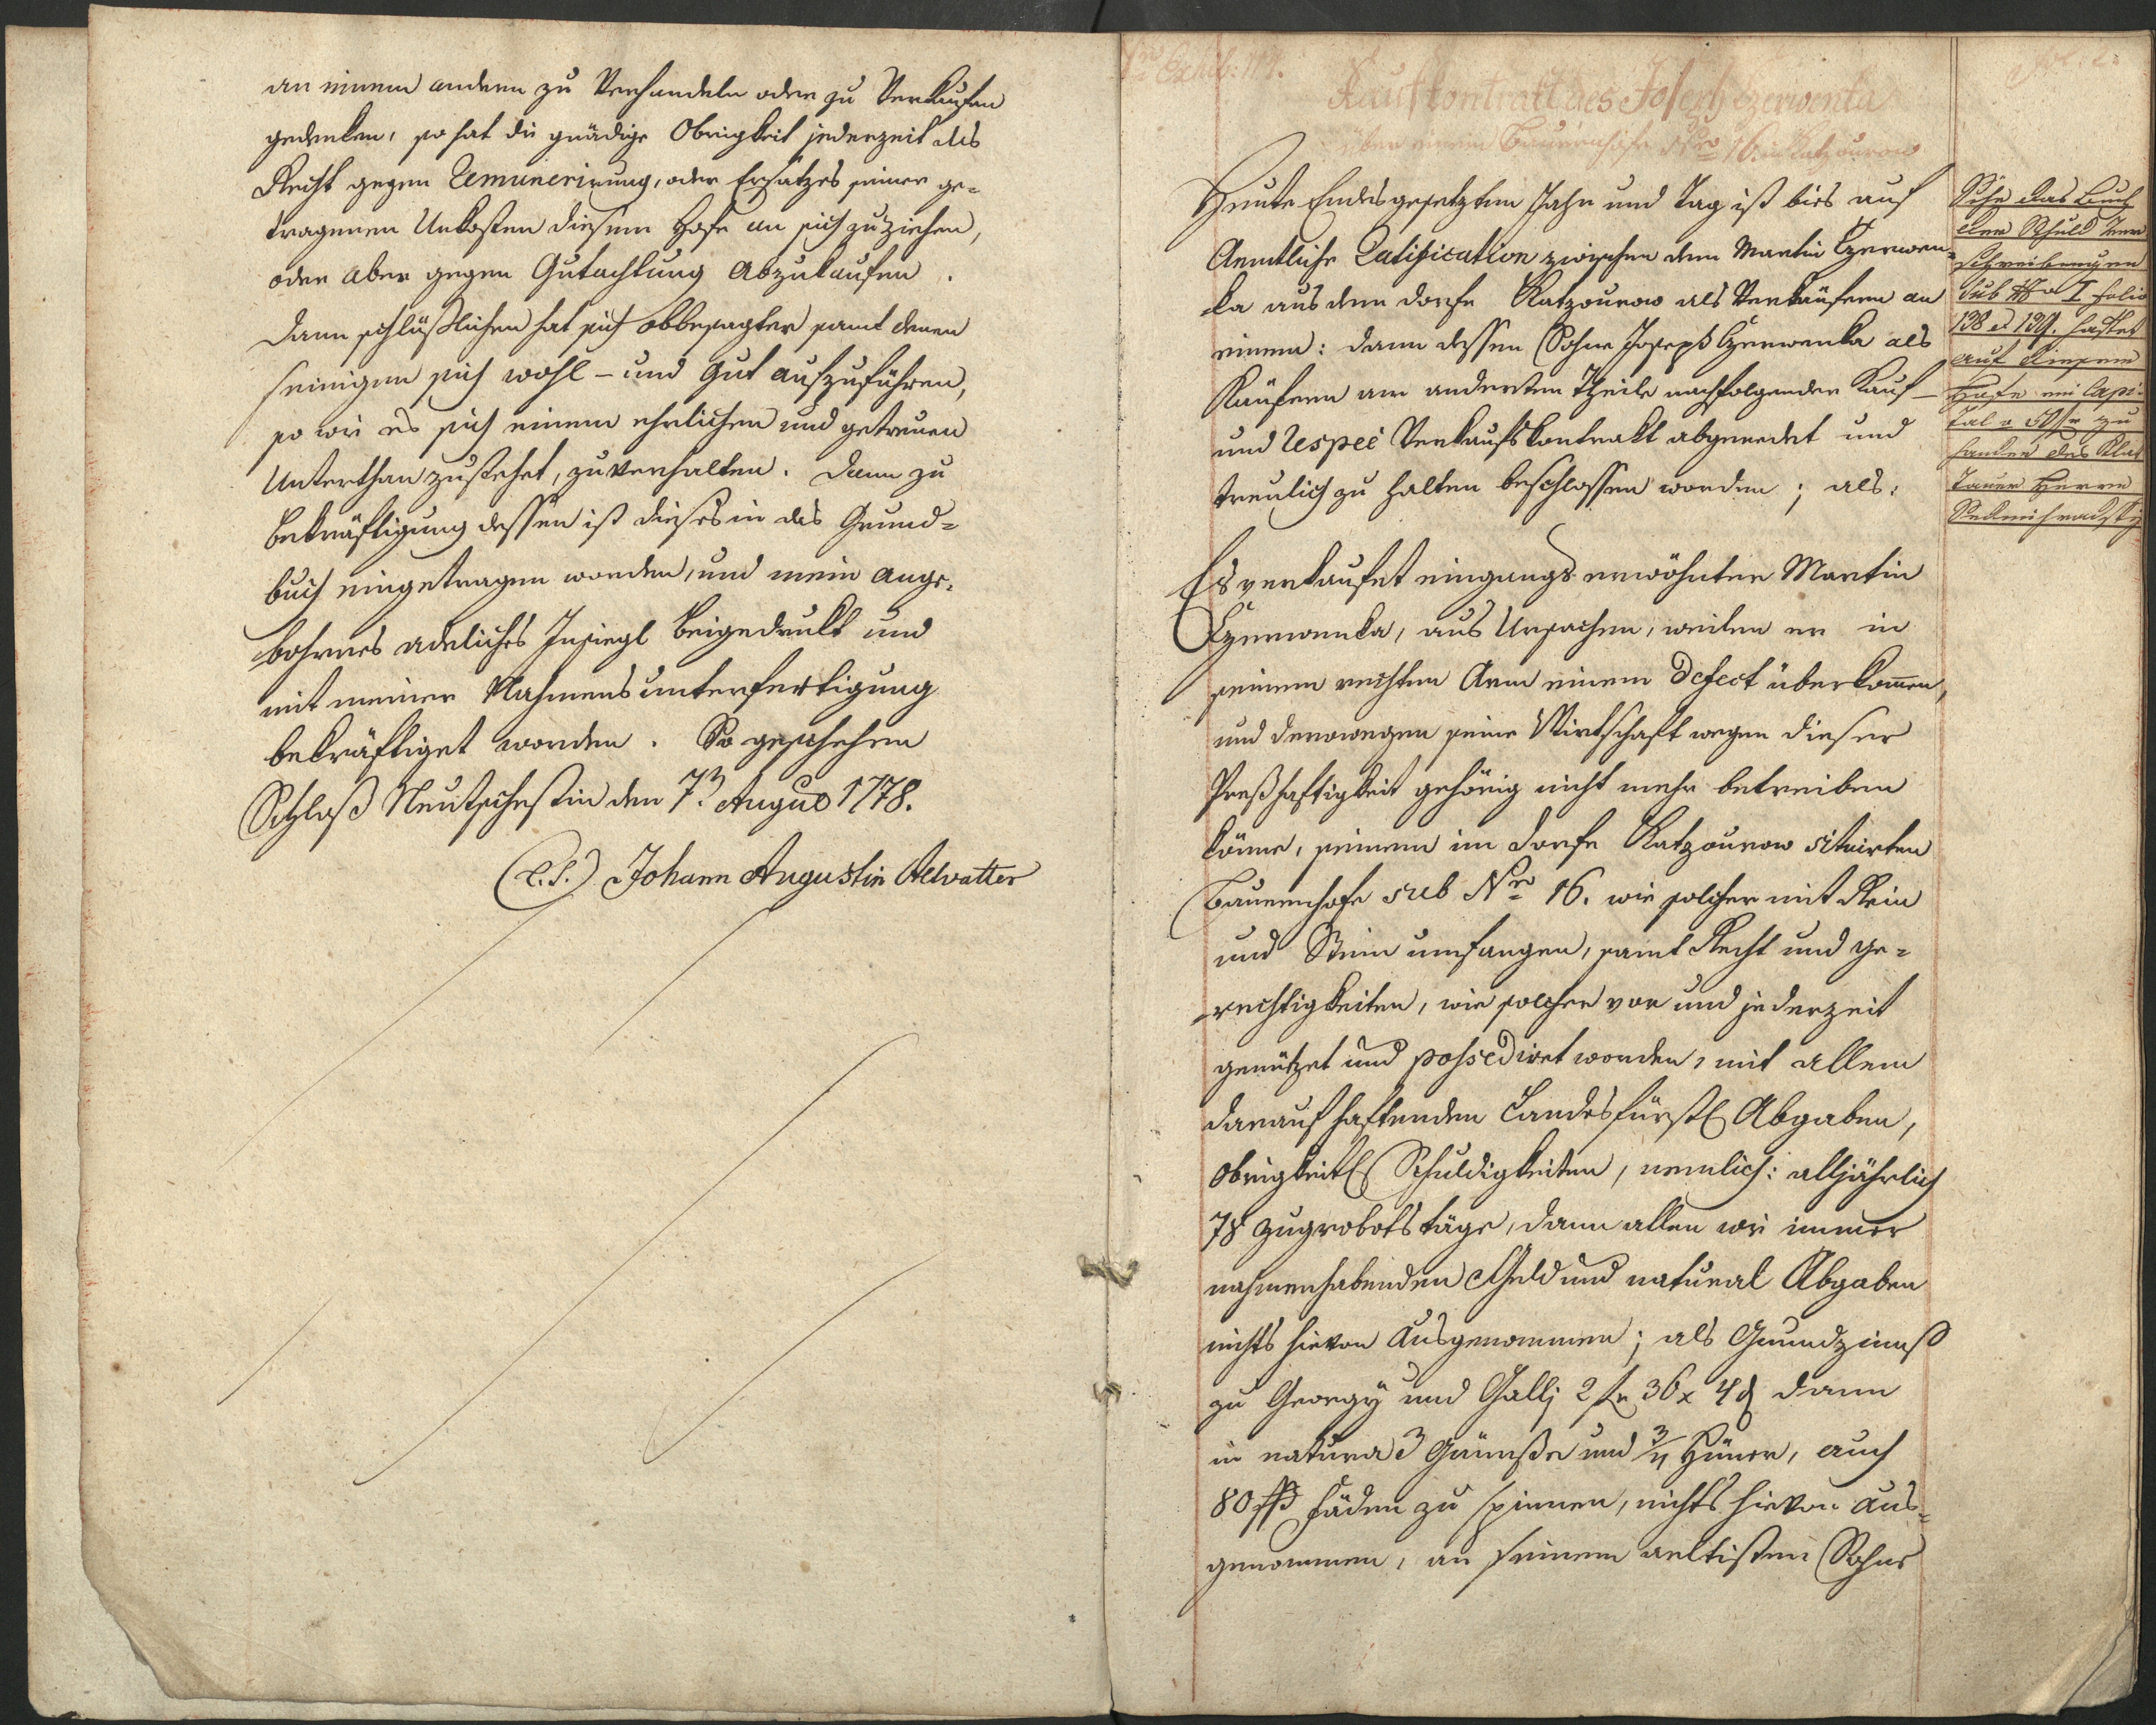 an einem andern zu Verhandeln oder zu Verkaufen
gedenken, so hat die gnädige Obrigkeit jederzeit das
Recht gegen Remunerirung, oder Ersatzes seiner ge-
tragenen Unkosten diesem Hofe an sich zu ziehen,
oder aber gegen Gutachtung Abzukaufen.
Dann schlüßlichen hat sich obbesagter samt denen
seinigen sich wohl- und gut aufzuführen,
so wie es sich einem ehrlichen und getreuen
Unterthan zustehet, zu verhalten. Dann zu
Bekräftigung dessen ist dieses in das Grund=
buch eingetragen worden, und mein ange-
bohrnes adeliches Insiegl beigedrukt und
mit meiner Nahmensunterfertigung
bekräftiget worden. So geschehen
Schloß Neutscheftin den 7n Augus 1778.
(L.S.) Johann Augustin Aelvatter
Nro Exhib: 117.
Fol: 2.
Kaufkontrakt des Joseph Czerwenka
über einem Bauernhofe Nro 16. in Katzourow
Heute Endesgesetzten Jahr und Tag ist bies auf
Aemtliche Ratification zwischen dem Martin Czerwen-
ka aus dem Dorfe Katzourow als Verkäufern an
einem: dann dessen Sohne Joseph Czerwenka als
Käufern am anderten Theile nachfolgender Kauf-
und respec Verkaufskontrakt abgeredet und
treulich zu halten beschlossen worden; als:
Es verkaufet eingangs erwöhnter Martin
Czerwenka, aus Ursachen, weilen er in
seinem rechten Arm einem Defect überkomen,
und derowegen seine Wirtschaft wegen dieser
Preßhaftigkeit gehörig nicht mehr betreiben
könne, seinem im Dorfe Katzourow situirten
Bauernhofe sub Nro 16. wie solcher mit Rein
und Stein umfangen, samt Recht und ge-
rechtigkeiten, wie solcher vor und jederzeit
genützet und possediret worden, mit allem
darauf haftenden Landesfürstl Abgaben,
Obrigkeitl Schuldigkeiten, nemlich: alljährlich
78 Zugrobotstäge, dann allen wie immer
nahmenhabenden Geld und natural Abgaben
nichts hievon Ausgenommen; als Grundzinnß
zu Georgy und Gallj 2 fr 36 x 4 d dann
in natura 3 Gännße und 3/4 Hüner, auch
80 Fäden zu spinnen, nichts hievon aus-
genommen, an seinem aeltisten Sohne
Sihe das Buch
der Schuld Ver
schreibungen
sub No I folio
138 et 139. haftet
auf diesem
Hofe ein Capi-
tal a 50 fr zu
handen des Klat
tauer Herrn